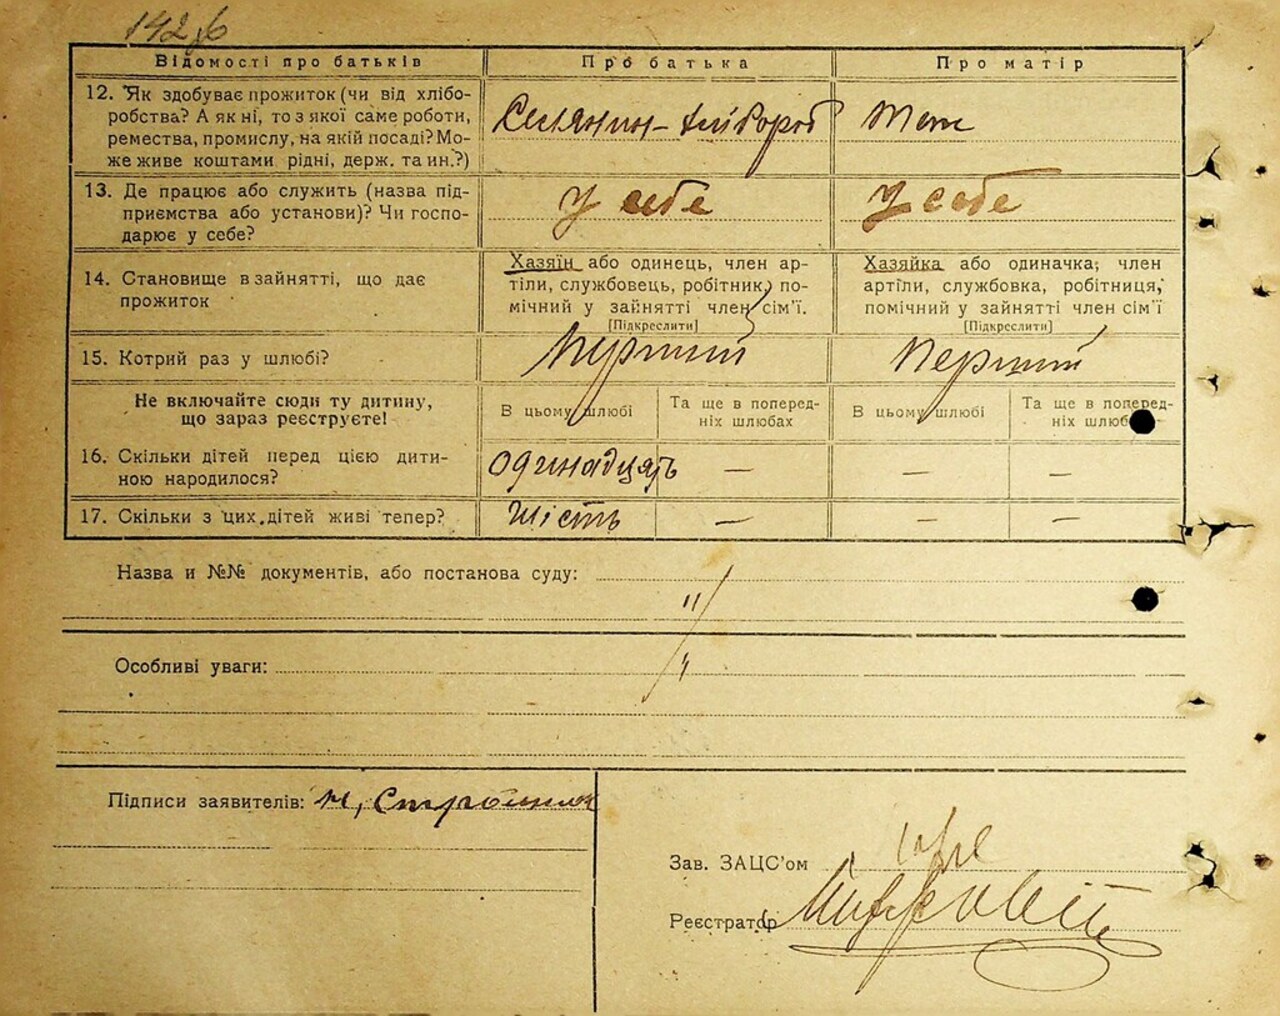 142 зв
Відомості про батьків
Про батька
Про матір
12. Як здобуває прожиток (чи від хлібо-
робства? А як ні, то з якої саме роботи,
ремества, промислу, на якій посаді? Мо-
же живе коштами рідні, держ. та ин.?)
Селянин-хлібороб
Теж
13. Де працює або служить (назва під-
приємства або установи)? Чи госпо-
дарює у себе?
У себе
У себе
14. Становище в зайнятті, що дає
прожиток
Хазяїн або одинець, член ар-
тіли, службовець, робітник, по-
мічний у зайнятті член сім'ї.
[Підкреслити]
Хазяйка або одиначка, член
артіли, службовка, робітниця,
помічний у зайнятті член сім'ї
[Підкреслити]
15. Котрий раз у шлюбі?
Перший
Перший
Не включайте сюди ту дитину,
що зараз реєструєте!
В цьому шлюбі
Та ще в поперед-
ніх шлюбах
В цьому шлюбі
Та ще в поперед-
ніх шлюбах
16. Скільки дітей перед цією дити-
ною народилося?
Одинадцять
—
—
—
17. Скільки з цих дітей живі тепер?
Шість
—
—
—
Назва и №№ документів, або постанова суду:
Особливі уваги:
Підписи заявителів:
Зав. ЗАЦС'ом
Реєстратор